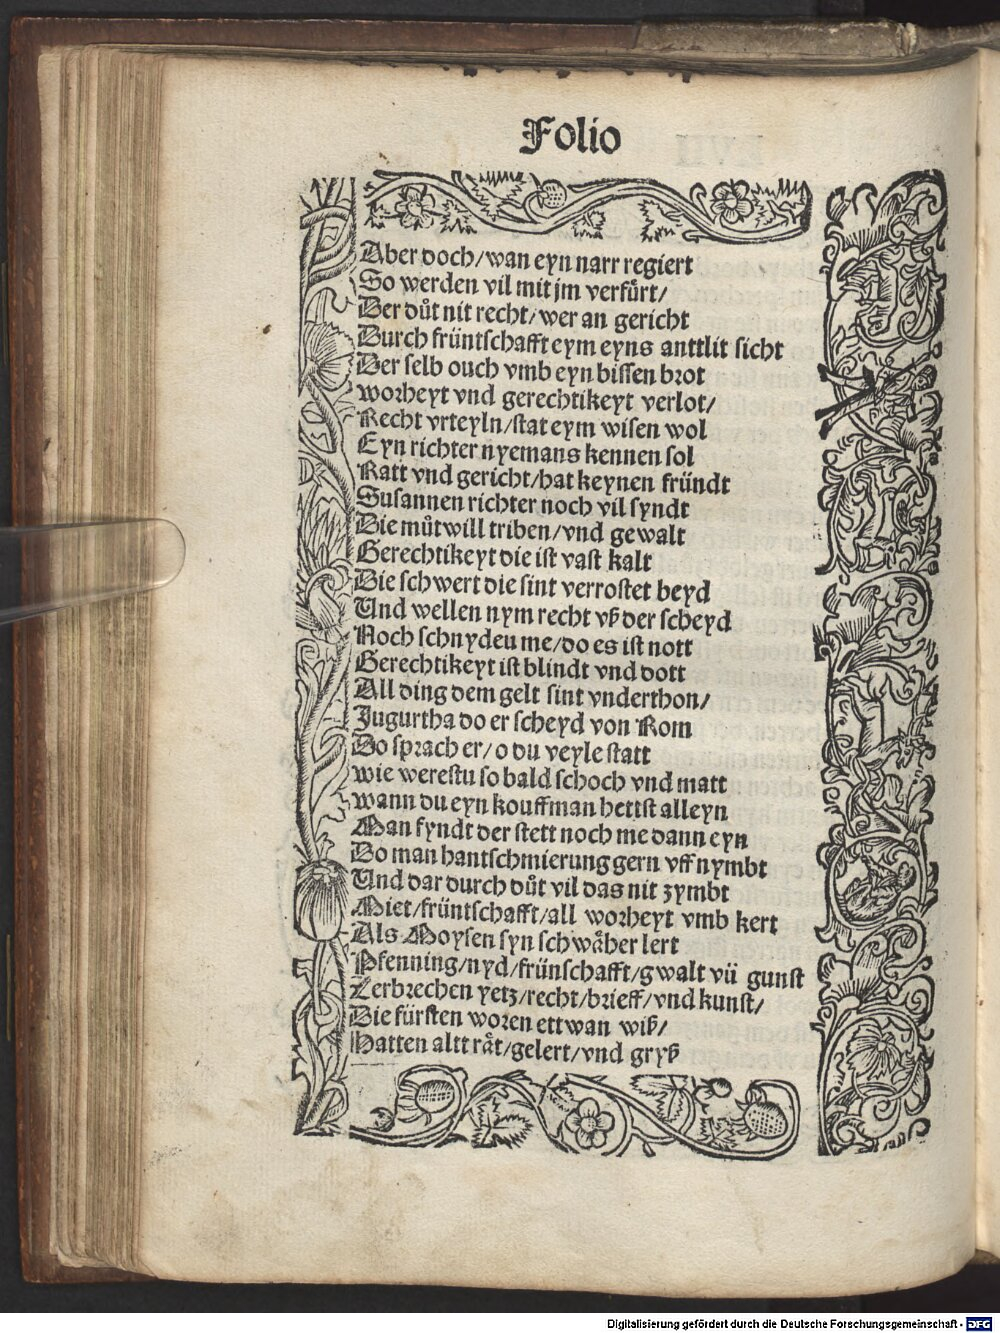 Folio
Aber doch/wan eyn narr regiert
So werden vil mit jm verfuͤrt/
Der duͦt nit recht/wer an gericht
Durch früntschafft eym eyns anttlit sicht
Der selb ouch vmb eyn bissen brot
worheyt vnd gerechtikeyt verlot/
Recht vrteyln/stat eym wisen wol
Eyn richter nyemans kennen sol
Ratt vnd gericht/hat keynen fründt
Susannen richter noch vil syndt
Die muͦtwill triben/vnd gewalt
Gerechtikeyt die ist vast kalt
Die schwert die sint verrostet beyd
Und wellen nym recht vß der scheyd
Noch schnydeu me/do es ist nott
Gerechtikeyt ist blindt vnd dott
All ding dem gelt sint vnderthon/
Jugurtha do er scheyd von Rom
Do sprach er/o du veyle statt
wie werestu so bald schoch vnd matt
wann du eyn kouffman hettst alleyn
Man fyndt der stett noch me dann eyn
Do man hantschmierung gern vff nymbt
Und dar durch duͦt vil das nit zymbt
Miet/früntschafft/all worheyt vmb kert
Als Moysen syn schwaͤher lert
Pfenning/nyd/frünschafft/gwalt vü gunst
Zerbrechen yetz/recht/brieff/vnd kunst/
Die fürsten woren ettwan wiß/
Hatten altt raͤt/gelert/vnd gryß
Digitalisierung gefördert durch die Deutsche Forschungsgemeinschaft - DFG